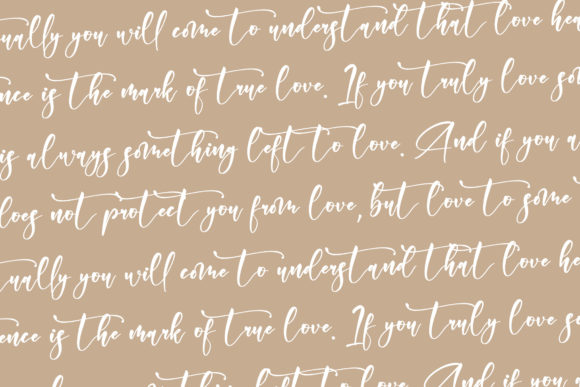 ually you will come to understand that love hea
ence is the mark of true love. If you truly love som
is always something left to love. And if you a
does not protect you from love, but love to some
ually you will come to understand that love he
ence is the mark of true love. If you truly love so
left to love. And if you